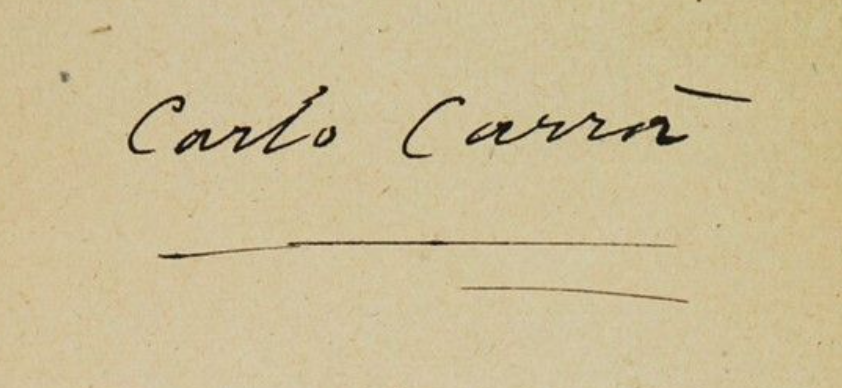 Carlo Carrà